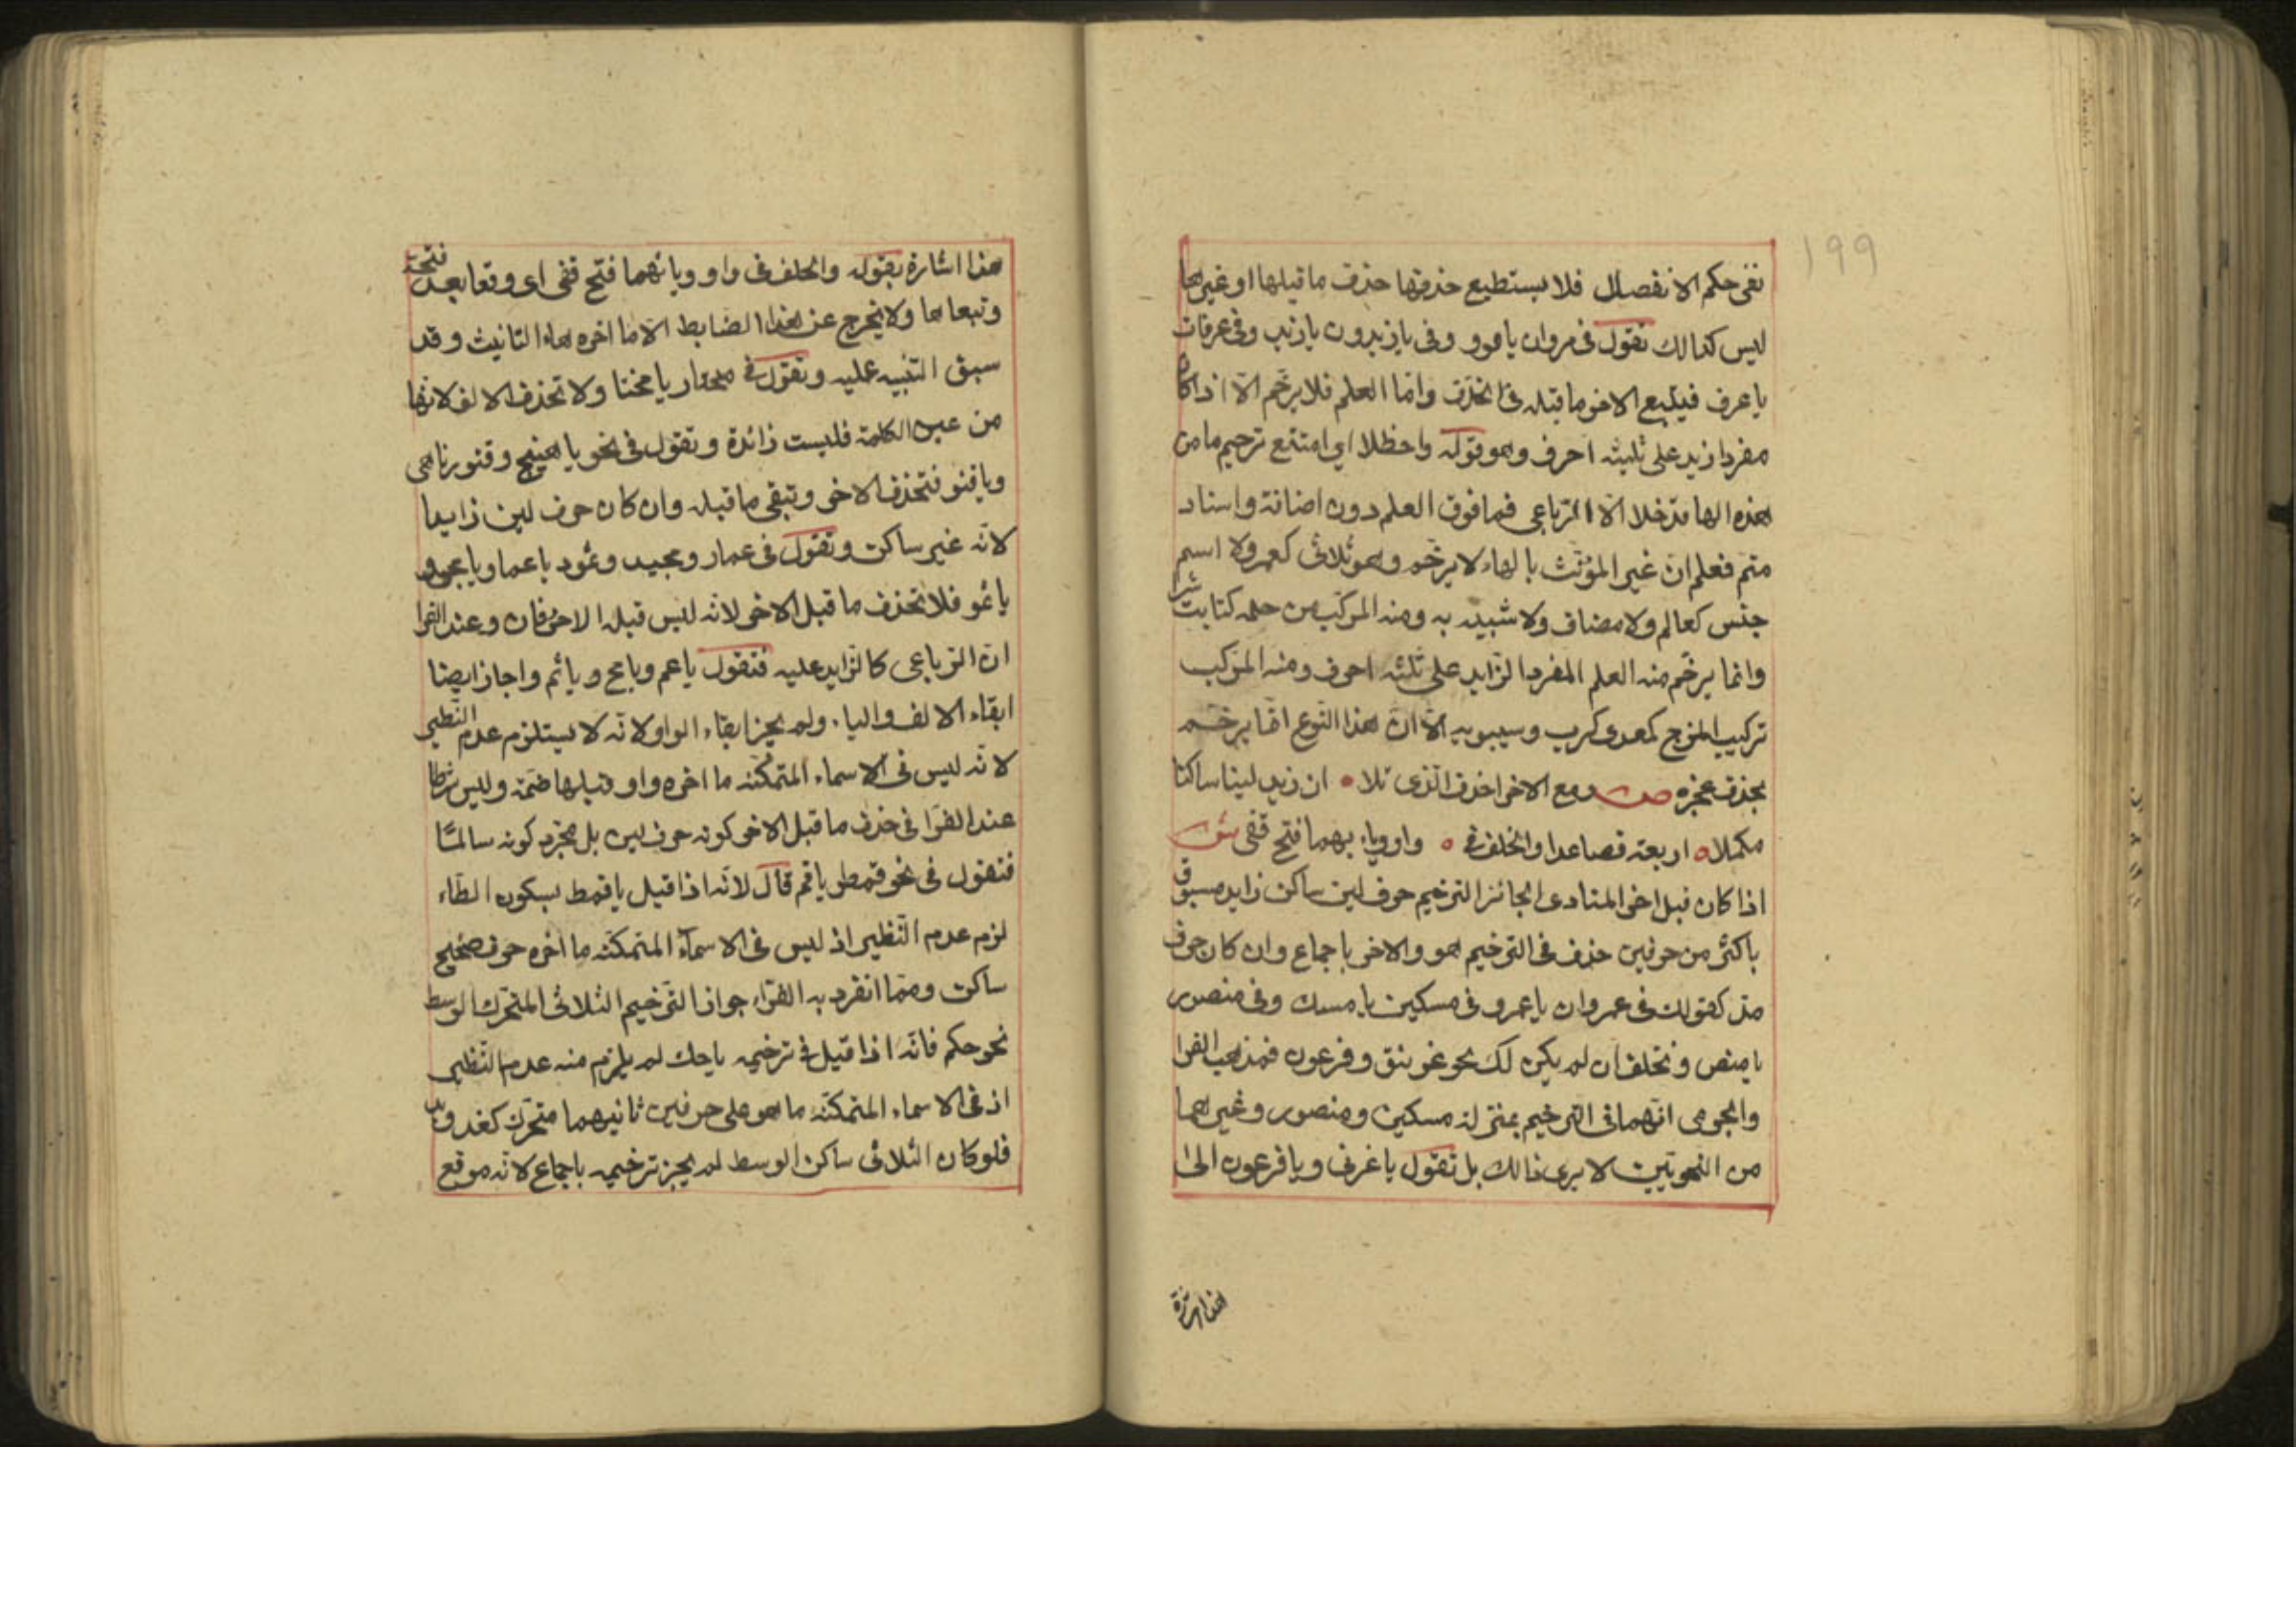 ١٩٩
نفى حكم الانفصال فلا يستطيع حذفها حذف ما قبلها او غيرها
ليس كذالك تقول فى مروان يا مرو وفى يا زيدون يا زيد وفى عرفات
يا عرف فيتبع الاخر ما قبله فى الحذف واما العلم فلا يرخم الا اذا كان
مفردا زيد على ثلثة احرف وهو قوله واحظلا اى امتنع ترخيم ما من
هذه الها قد خلا الا الرباعى فما فوق العلم دون اضافة واسناد
متم فعلم ان غير المؤنث بالهاء لا يرخم وهو ثلاثى كعمر ولا اسم
جنس كعالم ولا مضاف ولا شبيه به ومنه المركب من جمله كتابت شرا
وانما يرخم منه العلم المفرد الزايد على ثلثة احرف ومنه المركب
تركيب المزج كمعدى كرب وسيبويه الا ان هذا النوع انما يرخم
بحذف عجزه ص ومع الاخر احذف الذى تلا ه ان زيد لينا ساكنا
مكملا ه اربعة فصاعدا والخلف فى ه واو وياء بهما فتح قفى ش
اذا كان قبل اخر المنادى الجائز الترخيم حرف لين ساكن زايد مسبوق
باكثر من حرفين حذف فى الترخيم هو والاخر باجماع وان كان حرف
مد كقولك فى عمروان يا عمرو فى مسكين يا مسك وفى منصور
يا منص وتخلف ان لم يكن لك نحو غرنيق وفرعون فمذهب الفرا
والجرمى انهما فى الترخيم بمنزلة مسكين ومنصور وغيرهما
من النحويين لا يرى ذالك بل تقول يا غرنى ويا فرعون الى
هذا اشارة
هذا اشارة بقوله والخلف فى واو وياء بهما فتح قفى اى وقعا بعد فتحة
وتبعاها ولا يخرج عن هذا الضابط الا ما اخره هاء التانيث وقد
سبق التنبيه عليه وتقول فى مختار يا مختا ولا تحذف الالف لانها
من عين الكلمة فليست زائدة وتقول فى نحو يا هبيخ وقنور يا هبى
ويا قنو فتحذف الاخر وتبقى ما قبله وان كان حرف لين زايدا
لانه غير ساكن وتقول فى عمار ومجيد وثمود يا عما ويا مجى و
يا ثمو فلا تحذف ما قبل الاخر لانه ليس قبله الا حرفان وعند الفرا
ان الرباعى كالزايد عليه فتقول يا عم ويا مج ويا ثم واجاز ايضا
ابقاء الالف والياء ولم يجز ابقاء الواو لانه لا يستلزم عدم النظير
لانه ليس فى الاسماء المتمكنه ما اخره واو قبلها ضمة وليس شرطا
عند الفرا فى حذف ما قبل الاخر كونه حرف لين بل مجرد كونه سالما
فتقول فى نحو قمطر يا قم قال لانه اذا قيل يا قمط بسكون الطاء
لزم عدم النظير اذ ليس فى الاسماء المتمكنه ما اخره حرف صحيح
ساكن ومما انفرد به الفراء جواز الترخيم الثلاثى المتحرك الوسط
نحو حكم فانه اذا قيل فى ترخيمه يا حك لم يلزم منه عدم النظير
اذ فى الاسماء المتمكنه ما هو على حرفين ثانيهما متحرك كغد ويد
فلو كان الثلاثى ساكن الوسط لم يجز ترخيمه باجماع لانه موقع